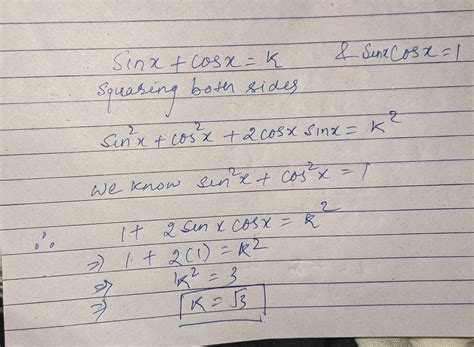 Sinx + cosx = K & Sinx Cosx = 1
Squaring both sides
Sin²x + cos²x + 2 cosx sinx = K²
we know sin²x + cos²x = 1
∴ 1 + 2 sin x cosx = K²
⇒ 1 + 2(1) = K²
⇒ K² = 3
⇒ K = √3